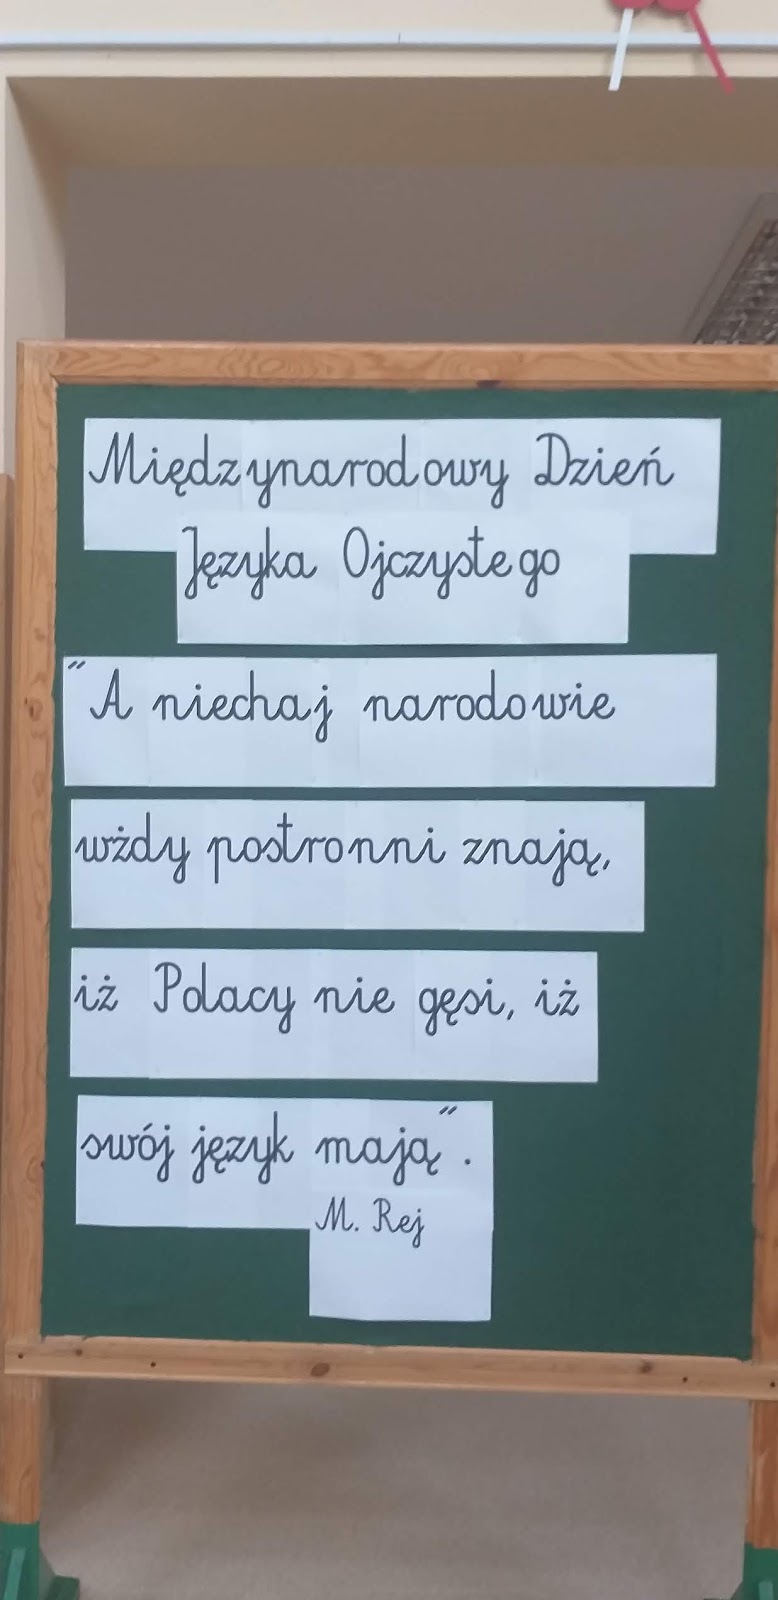 Międzynarodowy Dzień
Języka Ojczystego
"A niechaj narodowie
wżdy postronni znają,
iż Polacy nie gęsi, iż
swój język mają".
M. Rej